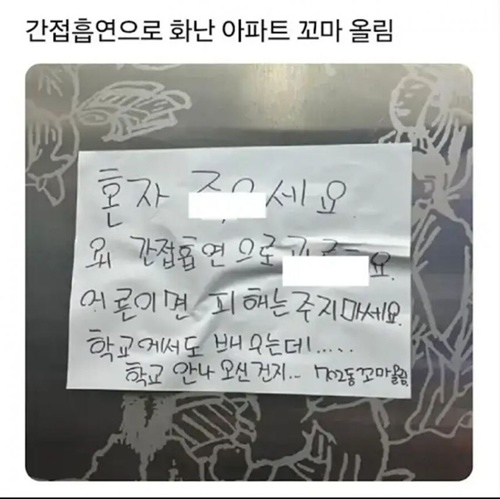 간접흡연으로 화난 아파트 꼬마 올림
혼자 세요
왜 간접흡연으로
어른이면 피해는 주지마세요.
학교에서도 배우는데.....
학교 안나오신건지... 702동 꼬마올림